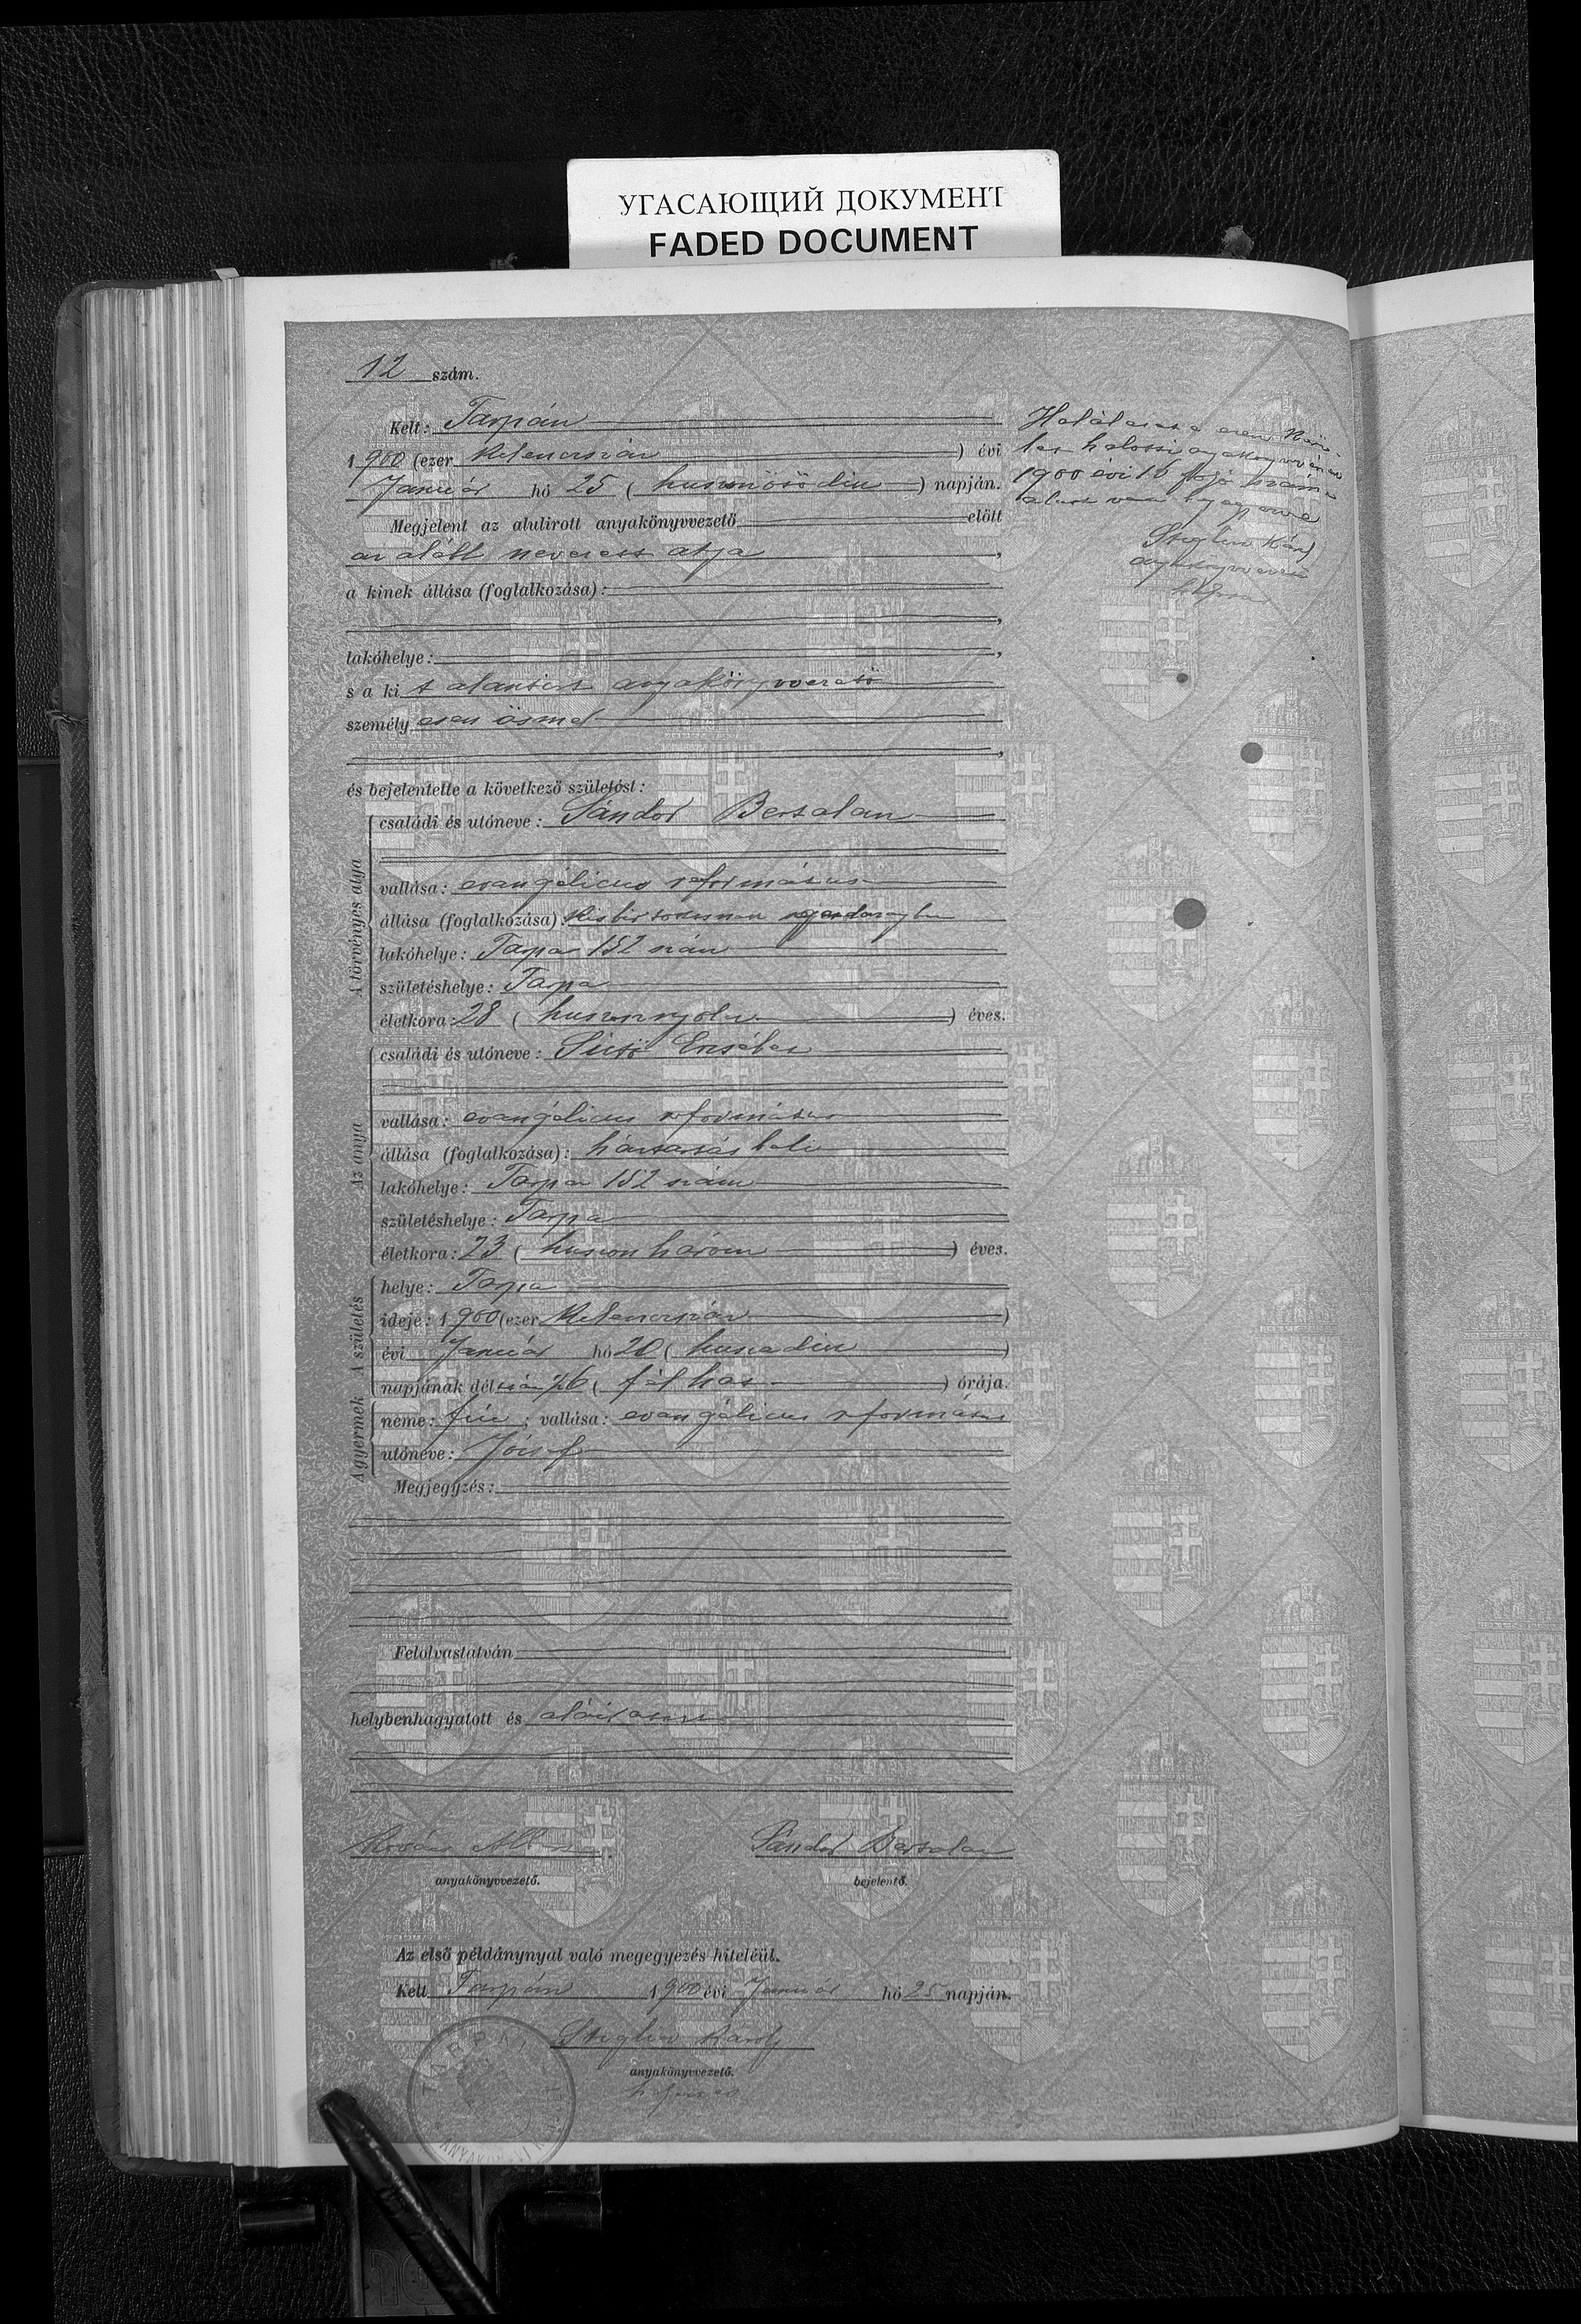 УГАСАЮЩИЙ ДОКУМЕНТ
FADED DOCUMENT
12 szám.
Kelt: Tarpán
1900 (ezer kilenczszáz) évi
Január hó 25 (huszonötödik) napján.
Megjelent az alulirott anyakönyvvezető előtt
az alább nevezett atya,
a kinek állása (foglalkozása):
lakóhelye:
s a ki t alantirt anyakönyvvezető
személyesen ösmer
és bejelentette a következő születést:
A törvényes atya
családi és utóneve: Sándor Bertalan
vallása: evangélicus református
állása (foglalkozása): kisbirtokosnan
lakóhelye: Tarpa 152 szám
születéshelye: Tarpa
életkora: 28 (huszonnyolcz) éves.
Az anya
családi és utóneve: Sütő Erzsébet
vallása: evangélicus református
állása (foglalkozása): háztartásbeli
lakóhelye: Tarpa 152 szám
születéshelye: Tarpa
életkora: 23 (huszonhárom) éves.
A születés
helye: Tarpa
ideje: 1900 (ezer kilenczszáz)
évi Január hó 20 (huszadik)
napjának dél után ½6 (fél hat) órája.
A gyermek
neme: fiu; vallása: evangélicus református
utóneve: József
Megjegyzés:
Felolvastatván
helybenhagyatott és aláiratott
Sándor Bertalan
anyakönyvvezető. bejelentő.
Az első példánynyal való megegyezés hiteléül.
Kelt Tarpán 1900 évi Január hó 25 napján.
Stiglin Károly
anyakönyvvezető.
helyettes
TARPAI
ANYAKÖNYVI
Halálesete ezen köz-
let halotti anyakönyvének
1900 évi 16 folyó száma
alatt van bejegyezve
Stiglin Károly
anyakönyvvezető
helyettes